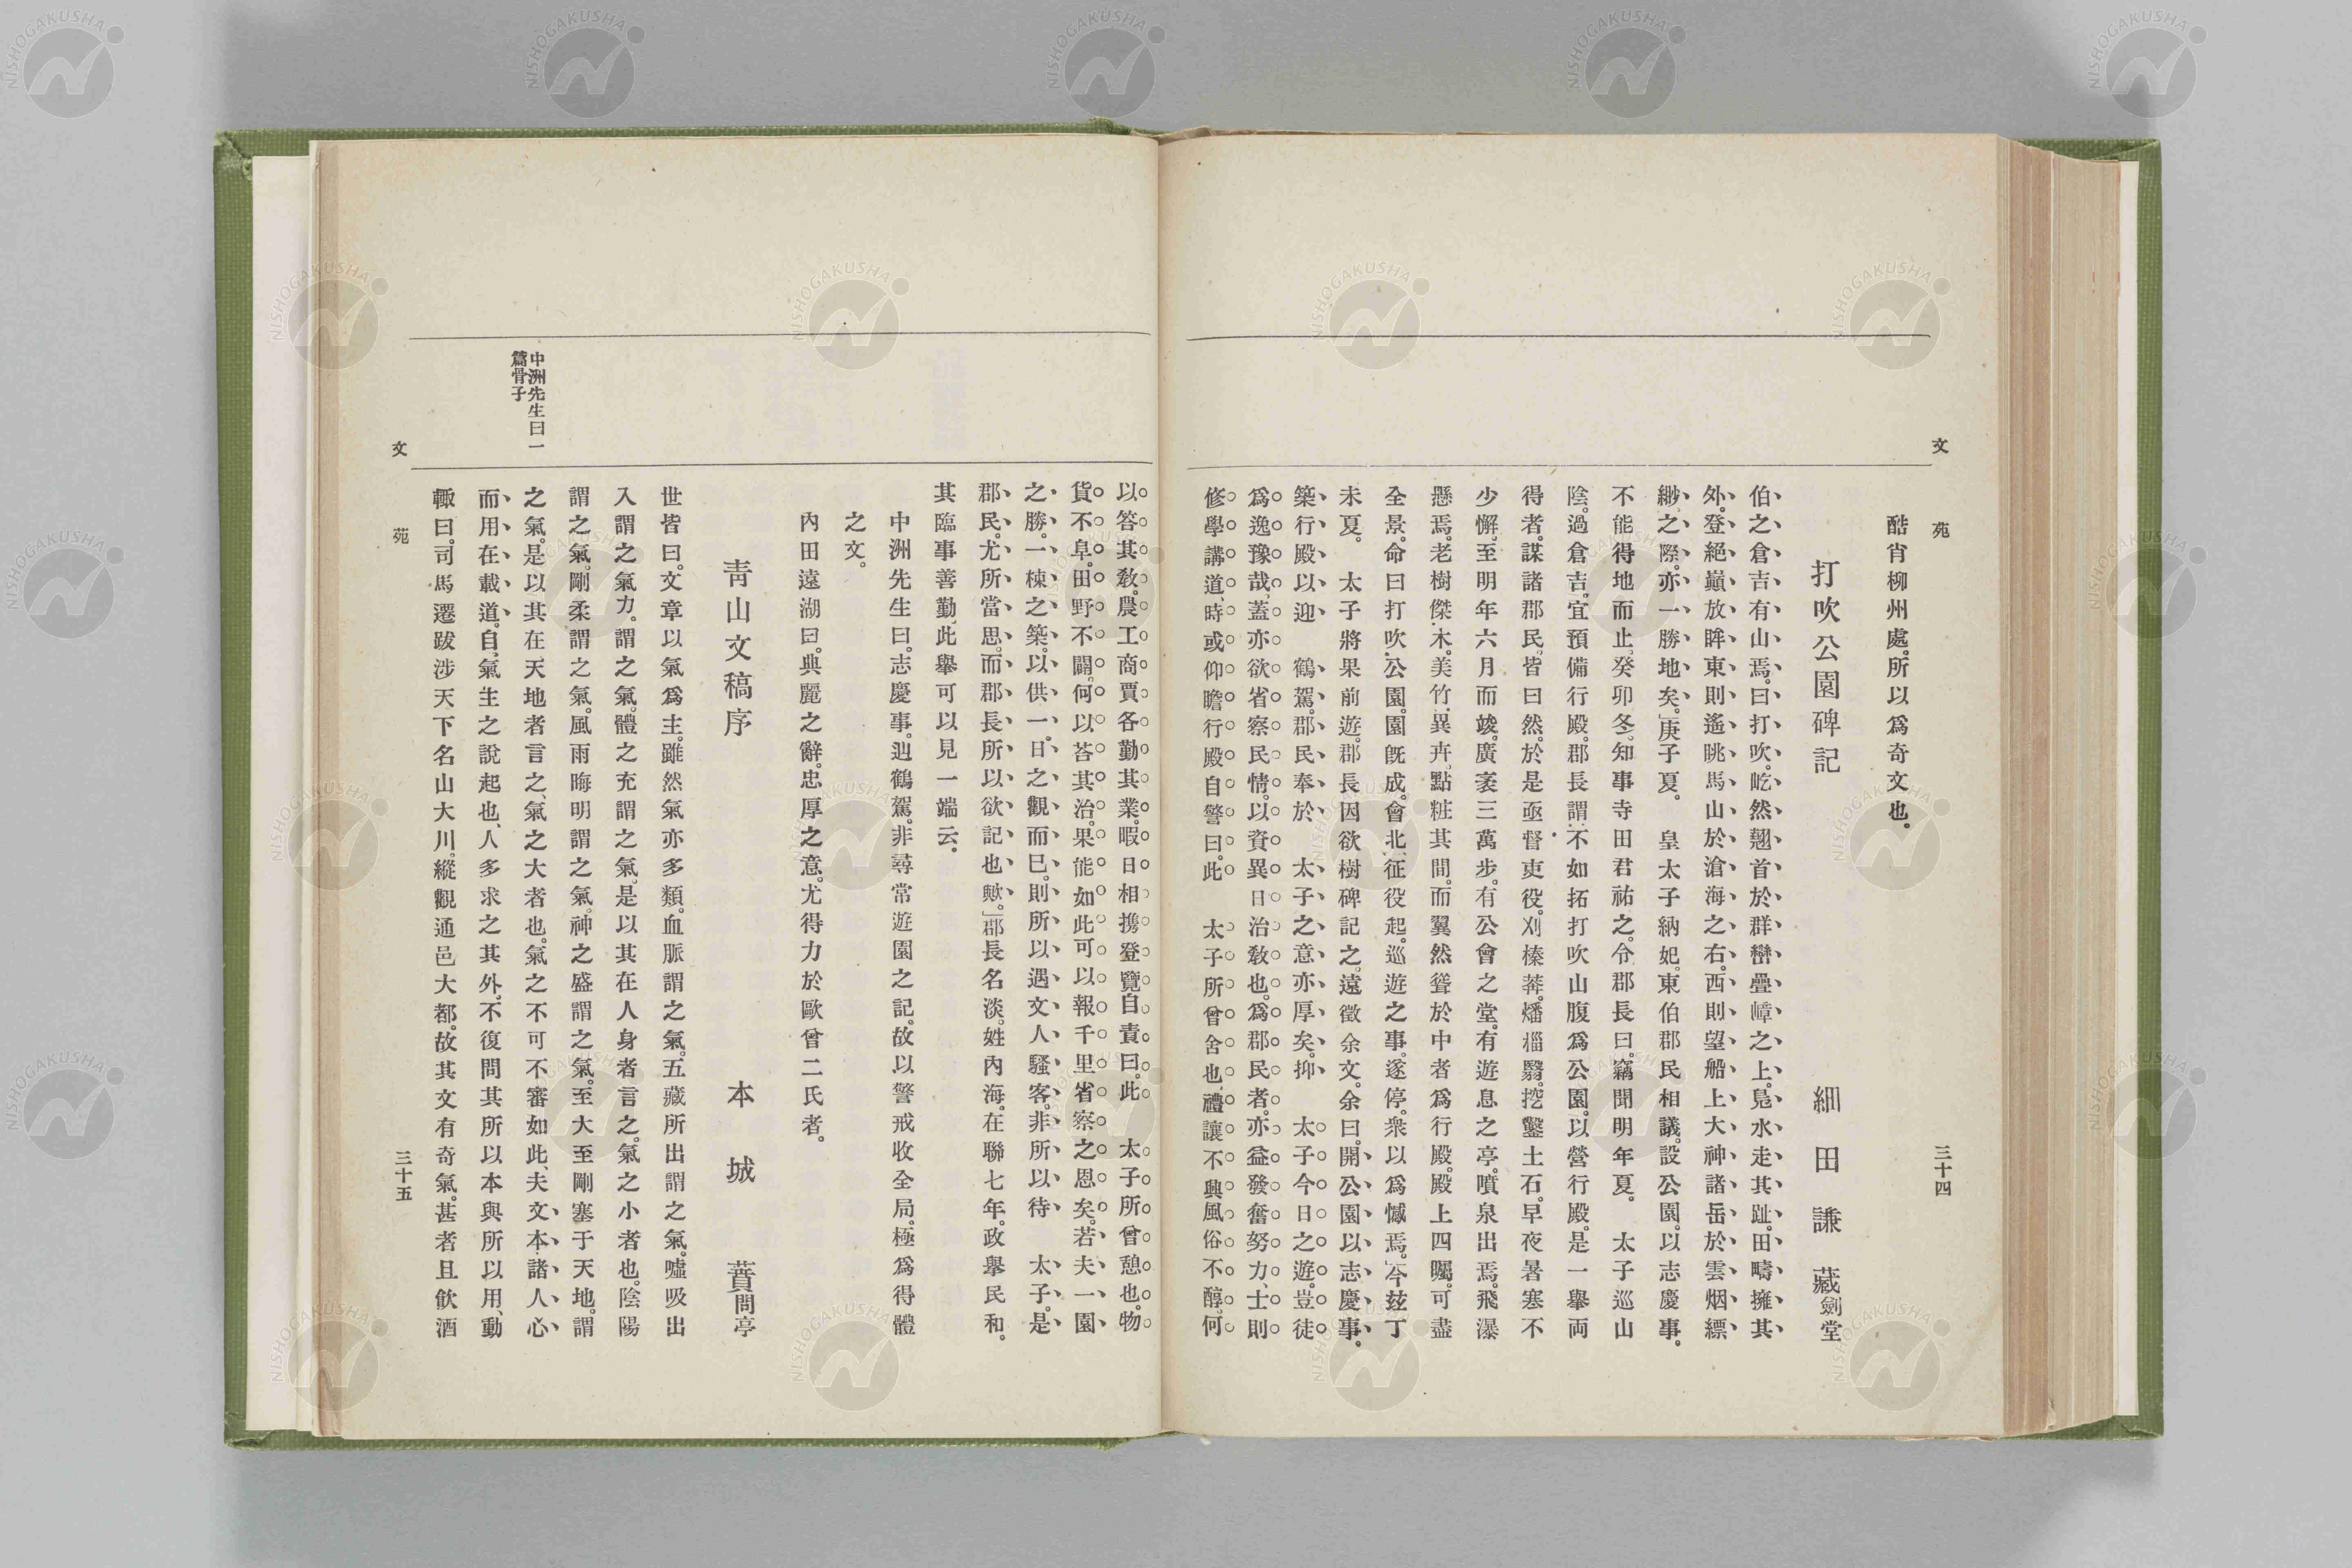 文 苑 三十四
酷肖柳州處。所以爲奇文也。
打吹公園碑記 細田謙藏劍堂
伯之倉吉有山焉。曰打吹。屹然翹首於群巒疊嶂之上。鳧水走其趾。田疇擁其
外。登絕巓放眸東則遙眺馬山於滄海之右。西則望船上大神諸岳於雲烟縹
緲之際。亦一勝地矣。」庚子夏。 皇太子納妃。東伯郡民相議。設公園。以志慶事。
不能得地而止。癸卯冬。知事寺田君祐之。令郡長曰。竊聞明年夏。 太子巡山
陰。過倉吉。宜預備行殿。郡長謂。不如拓打吹山腹爲公園。以營行殿。是一舉両
得者。謀諸郡民。皆曰然。於是亟督吏役。刈榛莽。燔榴翳。挖鑿土石。早夜暑寒不
少懈。至明年六月而竣。廣袤三萬步。有公會之堂。有遊息之亭。噴泉出焉。飛瀑
懸焉。老樹傑木。美竹異卉。點粧其間。而翼然聳於中者爲行殿。殿上四矚。可盡
全景。命曰打吹公園。園旣成。會北征役起。巡遊之事。遂停。衆以爲憾焉。」今玆丁
未夏。 太子將果前遊。郡長因欲樹碑記之。遠徵余文。余曰。開公園。以志慶事。
築行殿以迎 鶴駕。郡民奉於 太子之意亦厚矣。抑 太子今日之遊。豈徒
爲逸豫哉。蓋亦欲省察民情。以資異日治敎也。爲郡民者。亦益發奮努力、士則
修學講道、時或仰瞻行殿自警曰。此 太子所曾舍也、禮讓不興、風俗不醇、何
以答其敎。農工商賈各勤其業。暇日相携登覽自責曰。此 太子所曾憩也。物
貨不阜。田野不闢。何以荅其治。果能如此可以報千里省察之恩矣。若夫一園
之勝。一棟之築。以供一日之觀而已。則所以遇文人騷客。非所以待 太子。是
郡民。尤所當思。而郡長所以欲記也歟。」郡長名淡。姓內海。在聯七年。政舉民和。
其臨事善勤、此舉可以見一端云。
中洲先生曰。志慶事。迎鶴駕。非尋常遊園之記。故以警戒收全局。極爲得體
之文。
內田遠湖曰。典麗之辭。忠厚之意。尤得力於歐曾二氏者。
靑山文稿序 本城蕡問亭
世皆曰。文章以氣爲主。雖然氣亦多類。血脈謂之氣。五藏所出謂之氣。噓吸出
入謂之氣力。謂之氣。體之充謂之氣、是以其在人身者言之。氣之小者也。陰陽
謂之氣。剛柔謂之氣。風雨晦明謂之氣。神之盛謂之氣。至大至剛塞于天地。謂
之氣。是以其在天地者言之、氣之大者也。氣之不可不審如此、夫文本諸人心
而用在載道。自氣生之說起也、人多求之其外、不復問其所以本與所以用、動
輙曰。司馬遷跋涉天下名山大川。縱觀通邑大都。故其文有奇氣。甚者且飮酒
中洲先生曰一
篇骨子
文 苑 三十五
NISHOGAKUSHA